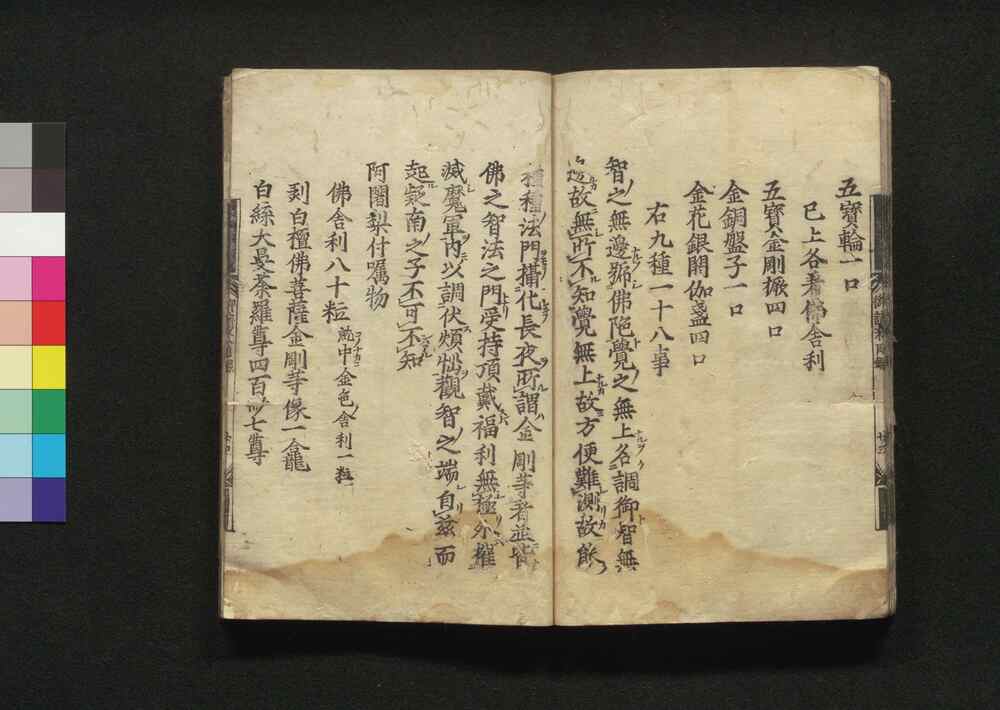 五寶輪一口
已上各著佛舍利
五寶金剛橛四口
金銅盤子一口
金花銀閼伽盞四口
右九種一十八事
智之無邊號佛陀覺之無上名調御智無
邊故無所不知覺無上故方便難測故能
種種法門攝化長夜所謂金剛等者並皆
佛之智法之門受持頂戴福利無極外摧
滅魔軍內以調伏煩惱觀智之端自茲而
起疑南之子不可不知
阿闍梨付囑物
佛舍利八十粒就中金色舍利一粒
刻白檀佛菩薩金剛等像一龕
白緤大曼荼羅尊四百卌七尊